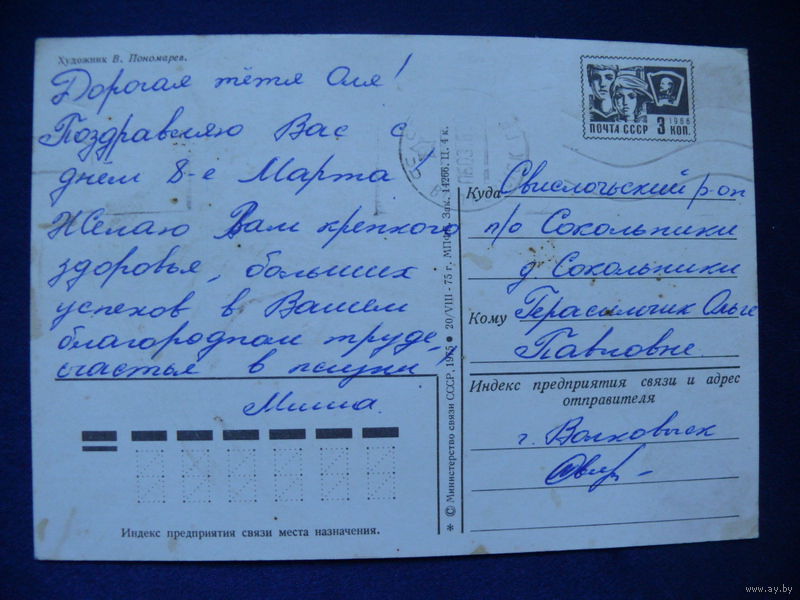 Художник В. Пономарев.
Дорогая тётя Оля!
Поздравляю Вас с
днём 8-е Марта
Желаю Вам крепкого
здоровья, больших
успехов в Вашем
благородном труде,
счастья в жизни
Индекс предприятия связи места назначения.
* © Министерство связи СССР, 1975 ● 20/VIII - 75 г. МПФГ. Зак. 14266. Ц. 4 к.
ПОЧТА СССР 3 КОП.
1966
Куда Свислочьский р-он
п/о Сокольники
д. Сокольники
Кому Герасимчик Ольге
Павловне.
Индекс предприятия связи и адрес
отправителя
г. Волковыск
www.ay.by